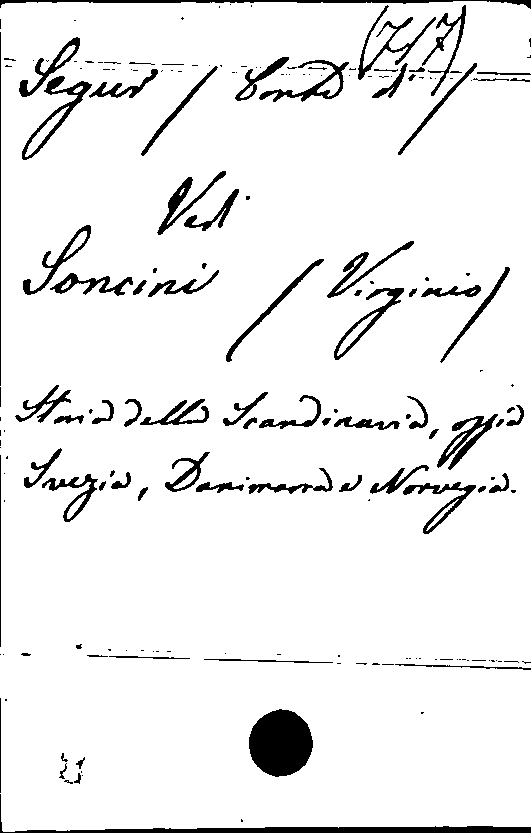 (7/7)
Segur / Conte d' /
Vedi
Soncini / Virginio /
Storia della Scandinavia, ossia
Svezia, Danimarca e Norvegia.